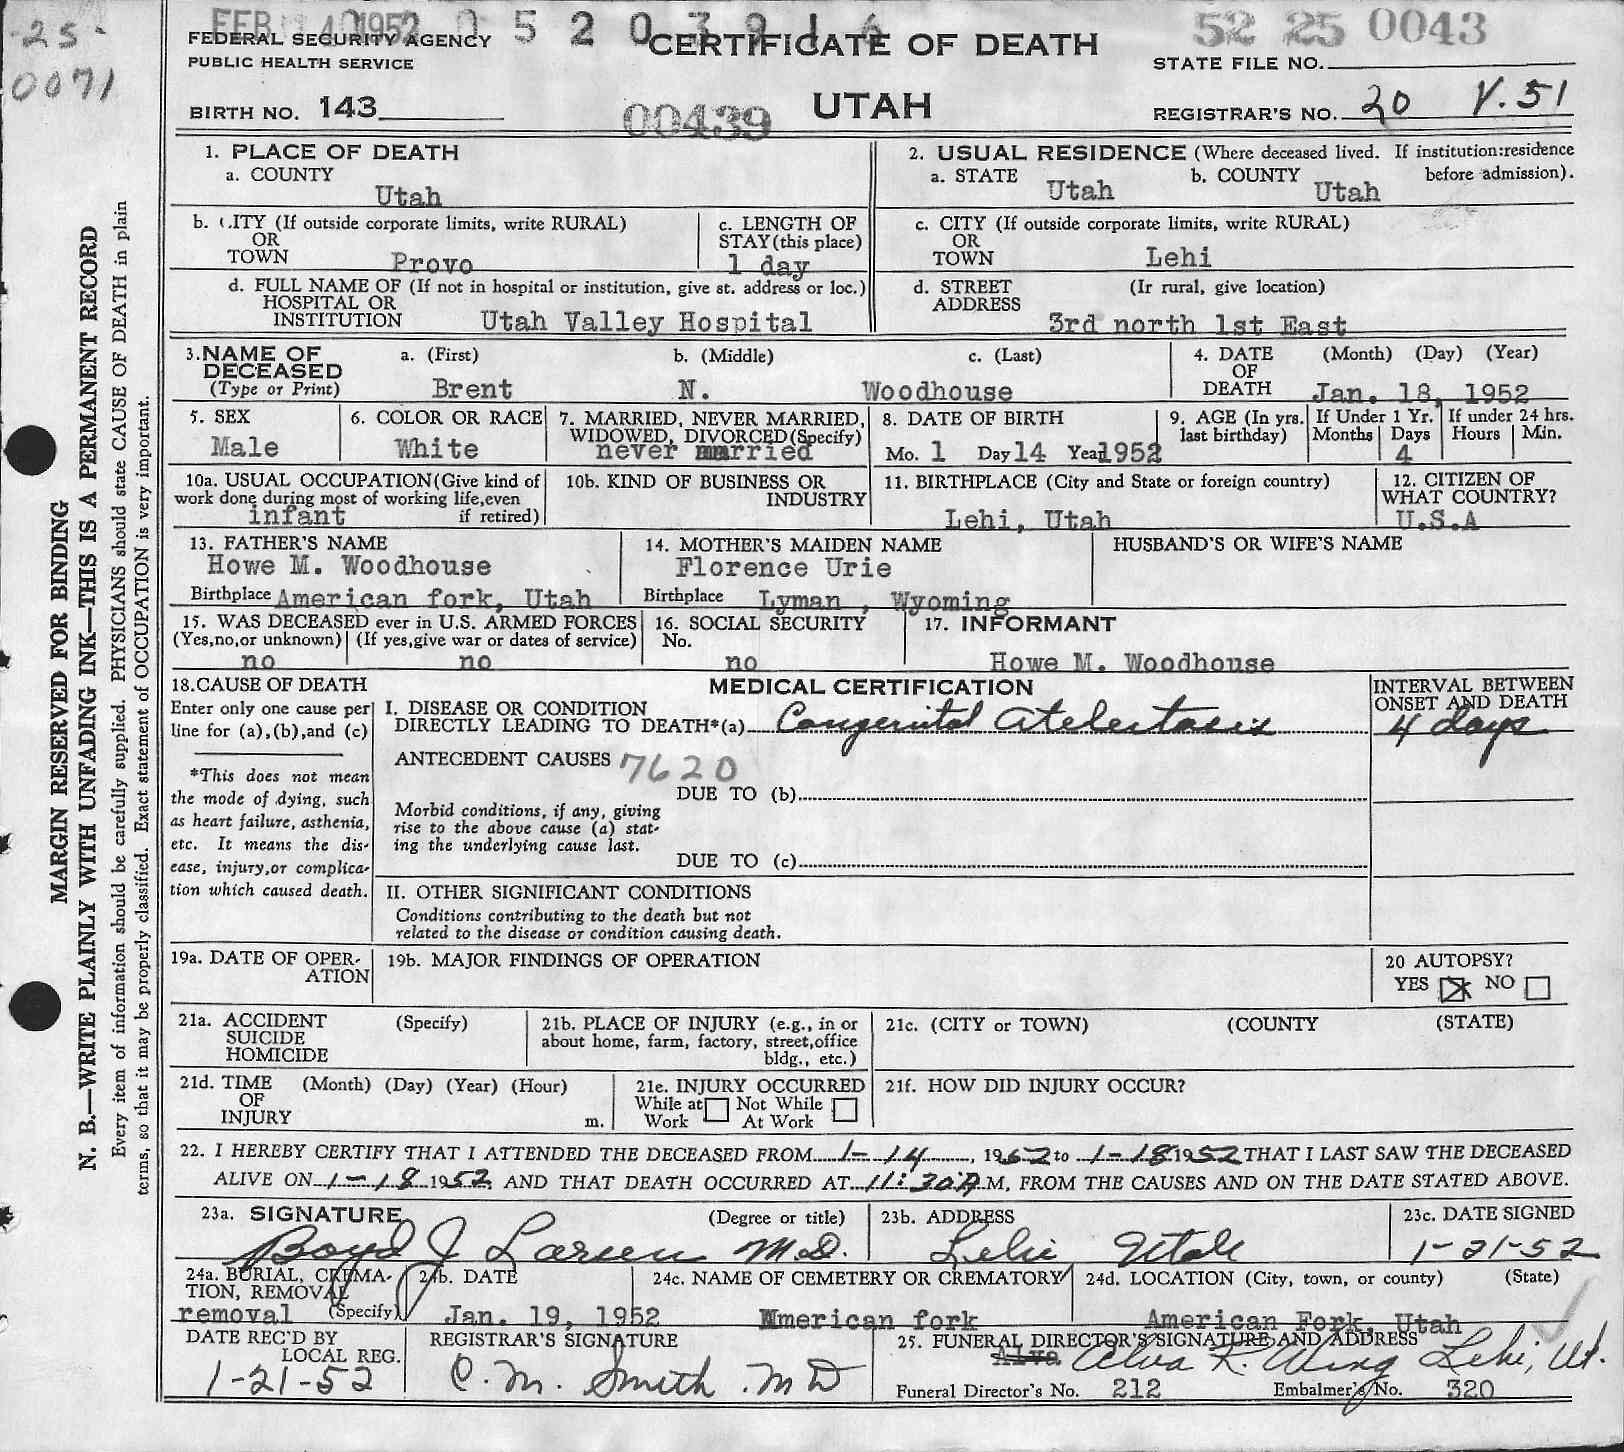 FEB 14 1952 0 5 2 0 3 9 1 6 52 25 0043
-25-
0071
FEDERAL SECURITY AGENCY
PUBLIC HEALTH SERVICE
CERTIFICATE OF DEATH
STATE FILE NO.
BIRTH NO. 143
00439
UTAH
REGISTRAR'S NO. 20 V. 51
MARGIN RESERVED FOR BINDING
N. B.—WRITE PLAINLY WITH UNFADING INK—THIS IS A PERMANENT RECORD
Every item of information should be carefully supplied. PHYSICIANS should state CAUSE OF DEATH in plain
terms, so that it may be properly classified. Exact statement of OCCUPATION is very important.
1. PLACE OF DEATH
a. COUNTY
Utah
2. USUAL RESIDENCE (Where deceased lived. If institution:residence
before admission).
a. STATE Utah b. COUNTY Utah
b. CITY (If outside corporate limits, write RURAL)
OR
TOWN Provo
c. LENGTH OF
STAY(this place)
1 day
c. CITY (If outside corporate limits, write RURAL)
OR
TOWN Lehi
d. FULL NAME OF (If not in hospital or institution, give st. address or loc.)
HOSPITAL OR
INSTITUTION Utah Valley Hospital
d. STREET (Ir rural, give location)
ADDRESS
3rd north 1st East
3.NAME OF
DECEASED
(Type or Print)
a. (First) b. (Middle) c. (Last)
Brent N. Woodhouse
4. DATE (Month) (Day) (Year)
OF
DEATH Jan. 18, 1952
5. SEX
Male
6. COLOR OR RACE
White
7. MARRIED, NEVER MARRIED,
WIDOWED, DIVORCED(Specify)
never married
8. DATE OF BIRTH
Mo. 1 Day 14 Year 1952
9. AGE (In yrs.
last birthday)
If Under 1 Yr.
Months Days
4
If under 24 hrs.
Hours Min.
10a. USUAL OCCUPATION(Give kind of
work done during most of working life,even
infant if retired)
10b. KIND OF BUSINESS OR
INDUSTRY
11. BIRTHPLACE (City and State or foreign country)
Lehi, Utah
12. CITIZEN OF
WHAT COUNTRY?
U.S.A
13. FATHER'S NAME
Howe M. Woodhouse
Birthplace American fork, Utah
14. MOTHER'S MAIDEN NAME
Florence Urie
Birthplace Lyman , Wyoming
HUSBAND'S OR WIFE'S NAME
15. WAS DECEASED ever in U.S. ARMED FORCES
(Yes,no,or unknown) (If yes,give war or dates of service)
no no
16. SOCIAL SECURITY
No.
no
17. INFORMANT
Howe M. Woodhouse
18.CAUSE OF DEATH
Enter only one cause per
line for (a),(b),and (c)
*This does not mean
the mode of dying, such
as heart failure, asthenia,
etc. It means the dis-
ease, injury,or complica-
tion which caused death.
MEDICAL CERTIFICATION
I. DISEASE OR CONDITION
DIRECTLY LEADING TO DEATH*(a) Congenital Atelectasis
INTERVAL BETWEEN
ONSET AND DEATH
4 days
ANTECEDENT CAUSES 7620
DUE TO (b)
Morbid conditions, if any, giving
rise to the above cause (a) stat-
ing the underlying cause last.
DUE TO (c)
II. OTHER SIGNIFICANT CONDITIONS
Conditions contributing to the death but not
related to the disease or condition causing death.
19a. DATE OF OPER-
ATION
19b. MAJOR FINDINGS OF OPERATION
20 AUTOPSY?
YES NO
21a. ACCIDENT (Specify)
SUICIDE
HOMICIDE
21b. PLACE OF INJURY (e.g., in or
about home, farm, factory, street,office
bldg., etc.)
21c. (CITY or TOWN) (COUNTY (STATE)
21d. TIME (Month) (Day) (Year) (Hour)
OF
INJURY m.
21e. INJURY OCCURRED
While at Not While
Work At Work
21f. HOW DID INJURY OCCUR?
22. I HEREBY CERTIFY THAT I ATTENDED THE DECEASED FROM 1-14, 1952 to 1-18 1952 THAT I LAST SAW THE DECEASED
ALIVE ON 1-18 1952, AND THAT DEATH OCCURRED AT 11:30 A.M, FROM THE CAUSES AND ON THE DATE STATED ABOVE.
23a. SIGNATURE (Degree or title)
Boyd J Larsen M.D.
23b. ADDRESS
Lehi Utah
23c. DATE SIGNED
1-21-52
24a. BURIAL, CREMA-
TION, REMOVAL
removal (Specify)
24b. DATE
Jan. 19, 1952
24c. NAME OF CEMETERY OR CREMATORY
American fork
24d. LOCATION (City, town, or county) (State)
American Fork, Utah
DATE REC'D BY
LOCAL REG.
1-21-52
REGISTRAR'S SIGNATURE
C. M. Smith . M D
25. FUNERAL DIRECTOR'S SIGNATURE AND ADDRESS
Alva Alva R. Wing Lehi, Ut.
Funeral Director's No. 212 Embalmer's No. 320